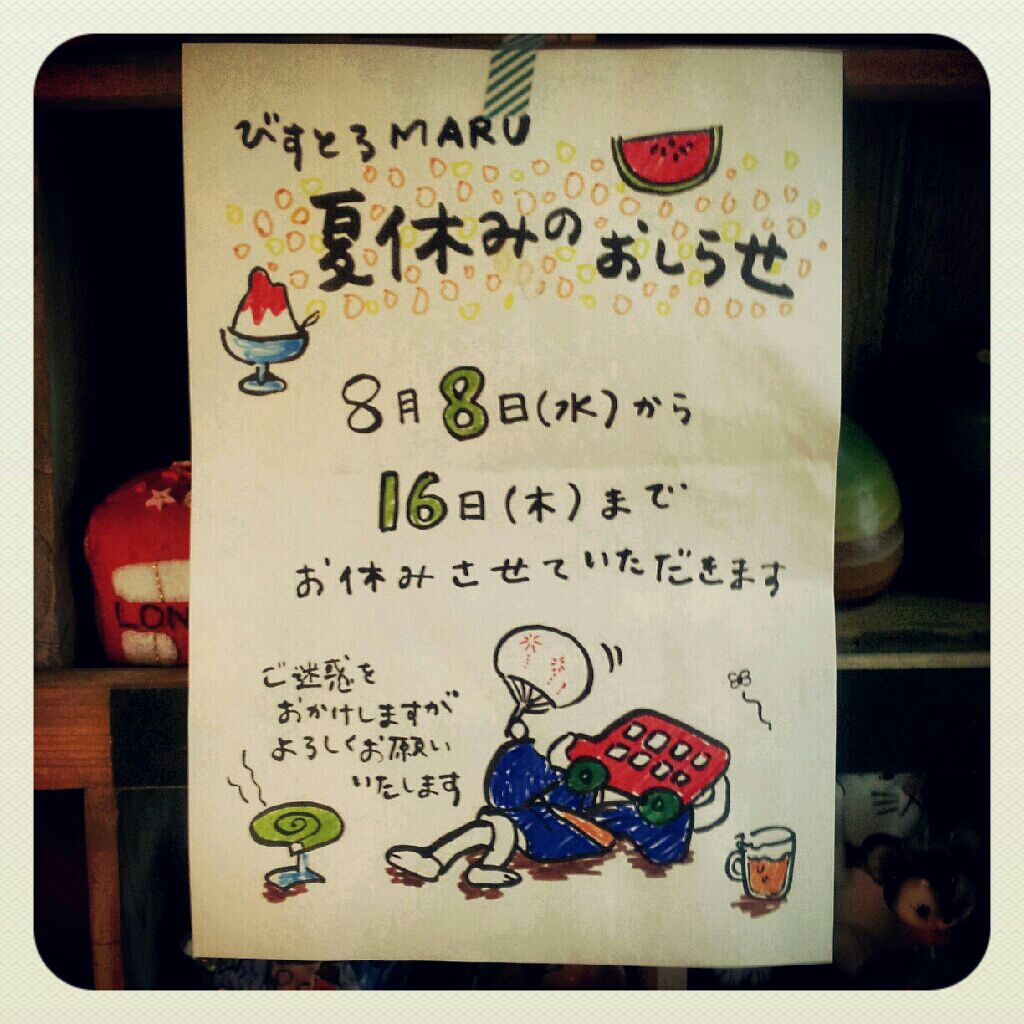 びすとろMARU
夏休みのおしらせ
8月8日(水)から
16日(木)まで
お休みさせていただきます
ご迷惑を
おかけしますが
よろしくお願い
いたします
LON